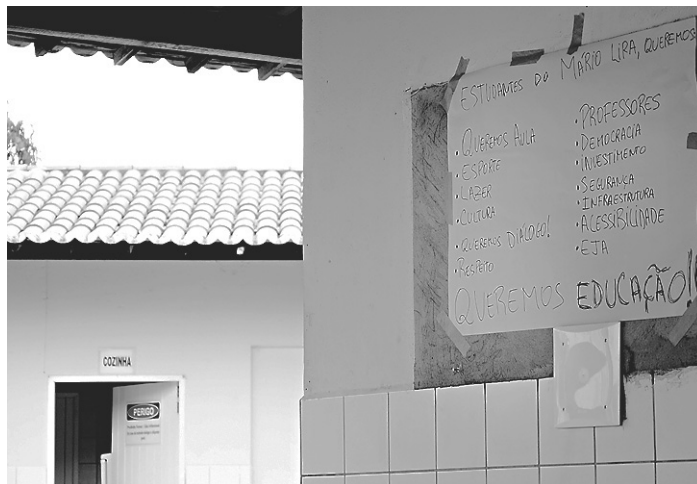 COZINHA
PERIGO
ESTUDANTES DO MÁRIO LIRA, QUEREMOS
• QUEREMOS AULA
• ESPORTE
• LAZER
• CULTURA
• QUEREMOS DIÁLOGO!
• RESPEITO
• PROFESSORES
• DEMOCRACIA
• INVESTIMENTO
• SEGURANÇA
• INFRAESTRUTURA
• ACESSIBILIDADE
• EJA
QUEREMOS EDUCAÇÃO!